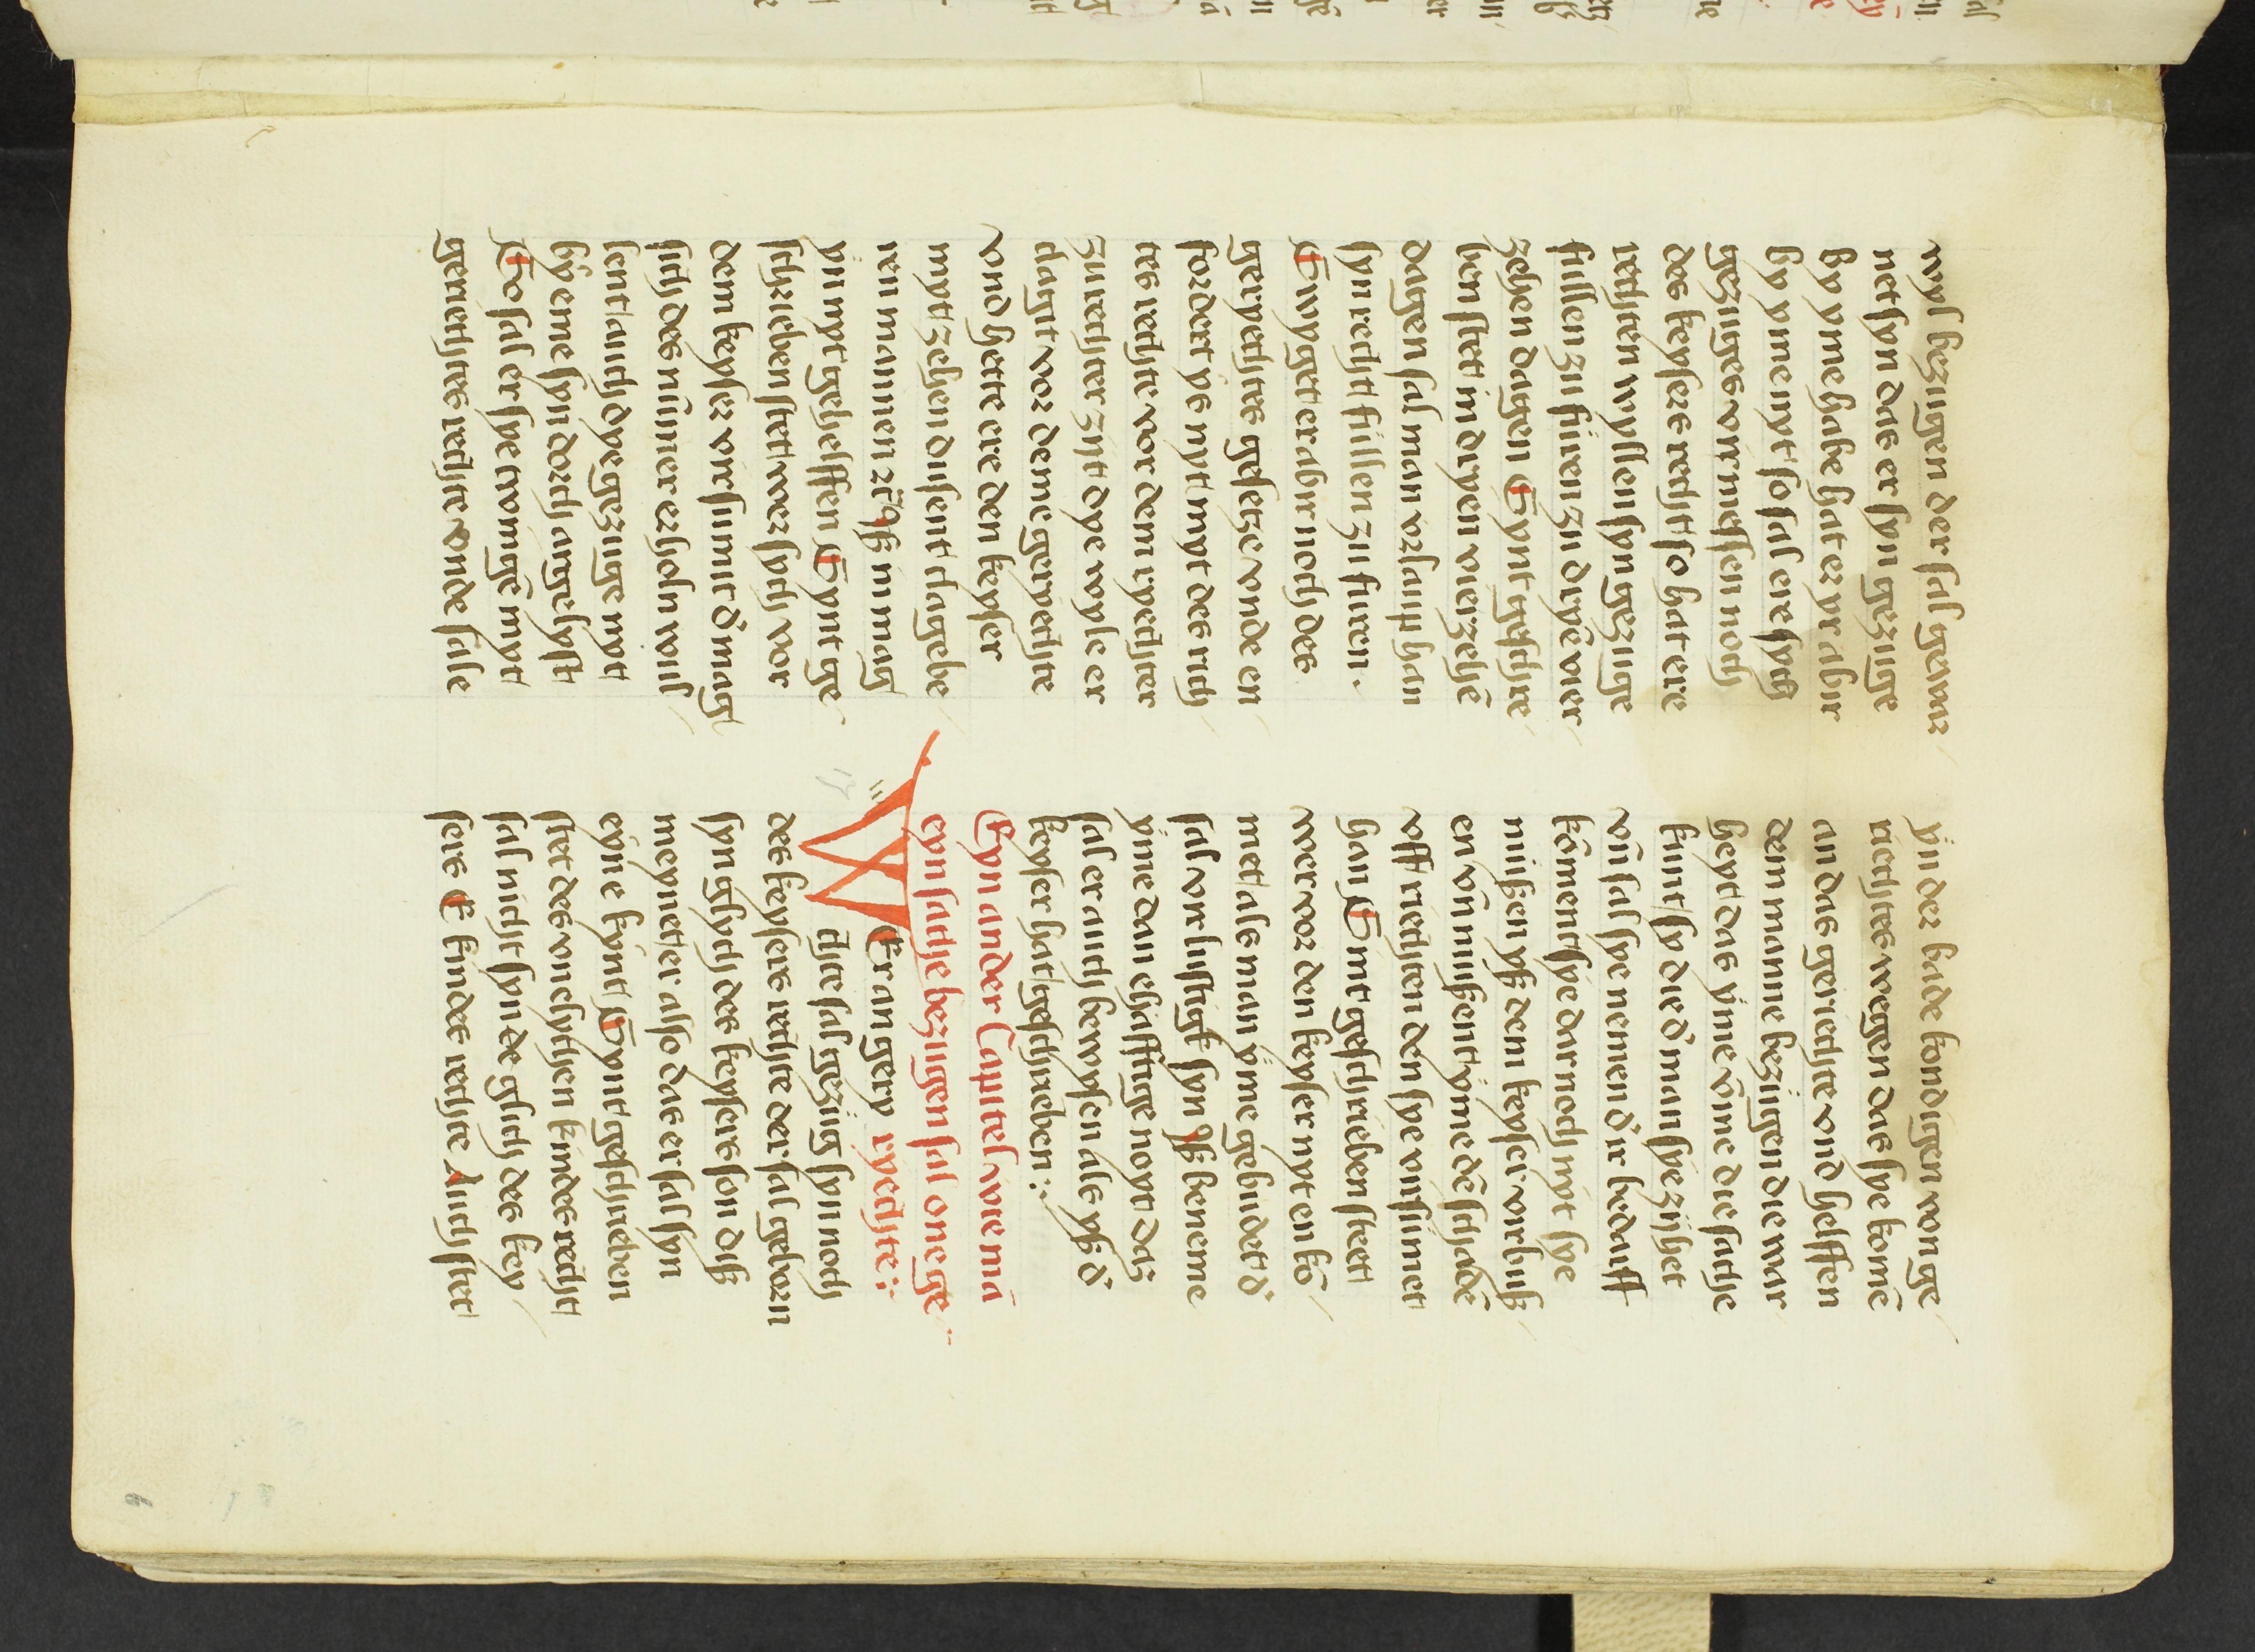 wyl bezugen der sal gewar
net syn das er syn gezuge
by yme habe hat er yr abir
by yme nyt so sal ere sych
gezuges vormessen noch
des keysers recht so hat ere
rechten wyssen syn gezuge
sullen zu furen zu drye vier
zehen dagen Synt geschre
ben stet in dryen vierzehē
dagen sal man orlaup han
syn recht sullen zu furen.
Swyget er abir noch des
gerychtes gesetze vnde en
fordert ys nyt nyt des rich
tes rechte vor dem rychter
zu rechter zijt dye wyle er
dagit vor deme gerychte
vnd hette ere den keyser
myt zehen dusent dagebe
ren mannen zc̄ Iß in mag
yn nyt gehelffen Synt ge
schreben stett wer sych vor
dem keyser vorsumit d mag
sich des nummer erholn wil
lent auch dye gezuge nyt
by eme syn dorch argelyst
So sal er sye twongē myt
gerechtes rechte vnde sale
yn der bade kondigen von ge
rechtes wegen das sye komē
an das gerechte vnd helffen
dem manne bezugen die war
heyt das yme vme die sache
kunt sy die d man sye zyhet
vn sal sye nemen dir bedarff
koment sye dar noch nyt sye
mußen yß dem keyser vorbuß
en vn mußent yme dē schadē
vff rechten den sye vorsumet
han Sint geschreben stett
wer vor den keyser nyt en ko
met als man yme gebudet d
sal vorlustigk syn Iß beneme
yme dan ehafftige noyt das
sal er auch bewysen als yß d
keyser hat geschreben:.
Eyn ander Capittel wie mā
eyn sache bezugen sal one ge
rychte:.
WEr an gery
chte sal gezug syn noch
des keysers rechte der sal geborn
syn glych des keysers son diß
meynet er also das er sal syn
eyne kynt Synt geschreben
stet des vnelychen kindes recht
sal nicht synde glych des key
sers E kindes rechte Auch stet